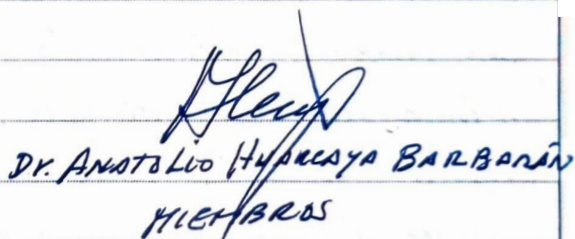 Dr. ANATOLIO HUARCAYA BARBARÁN
MIEMBROS